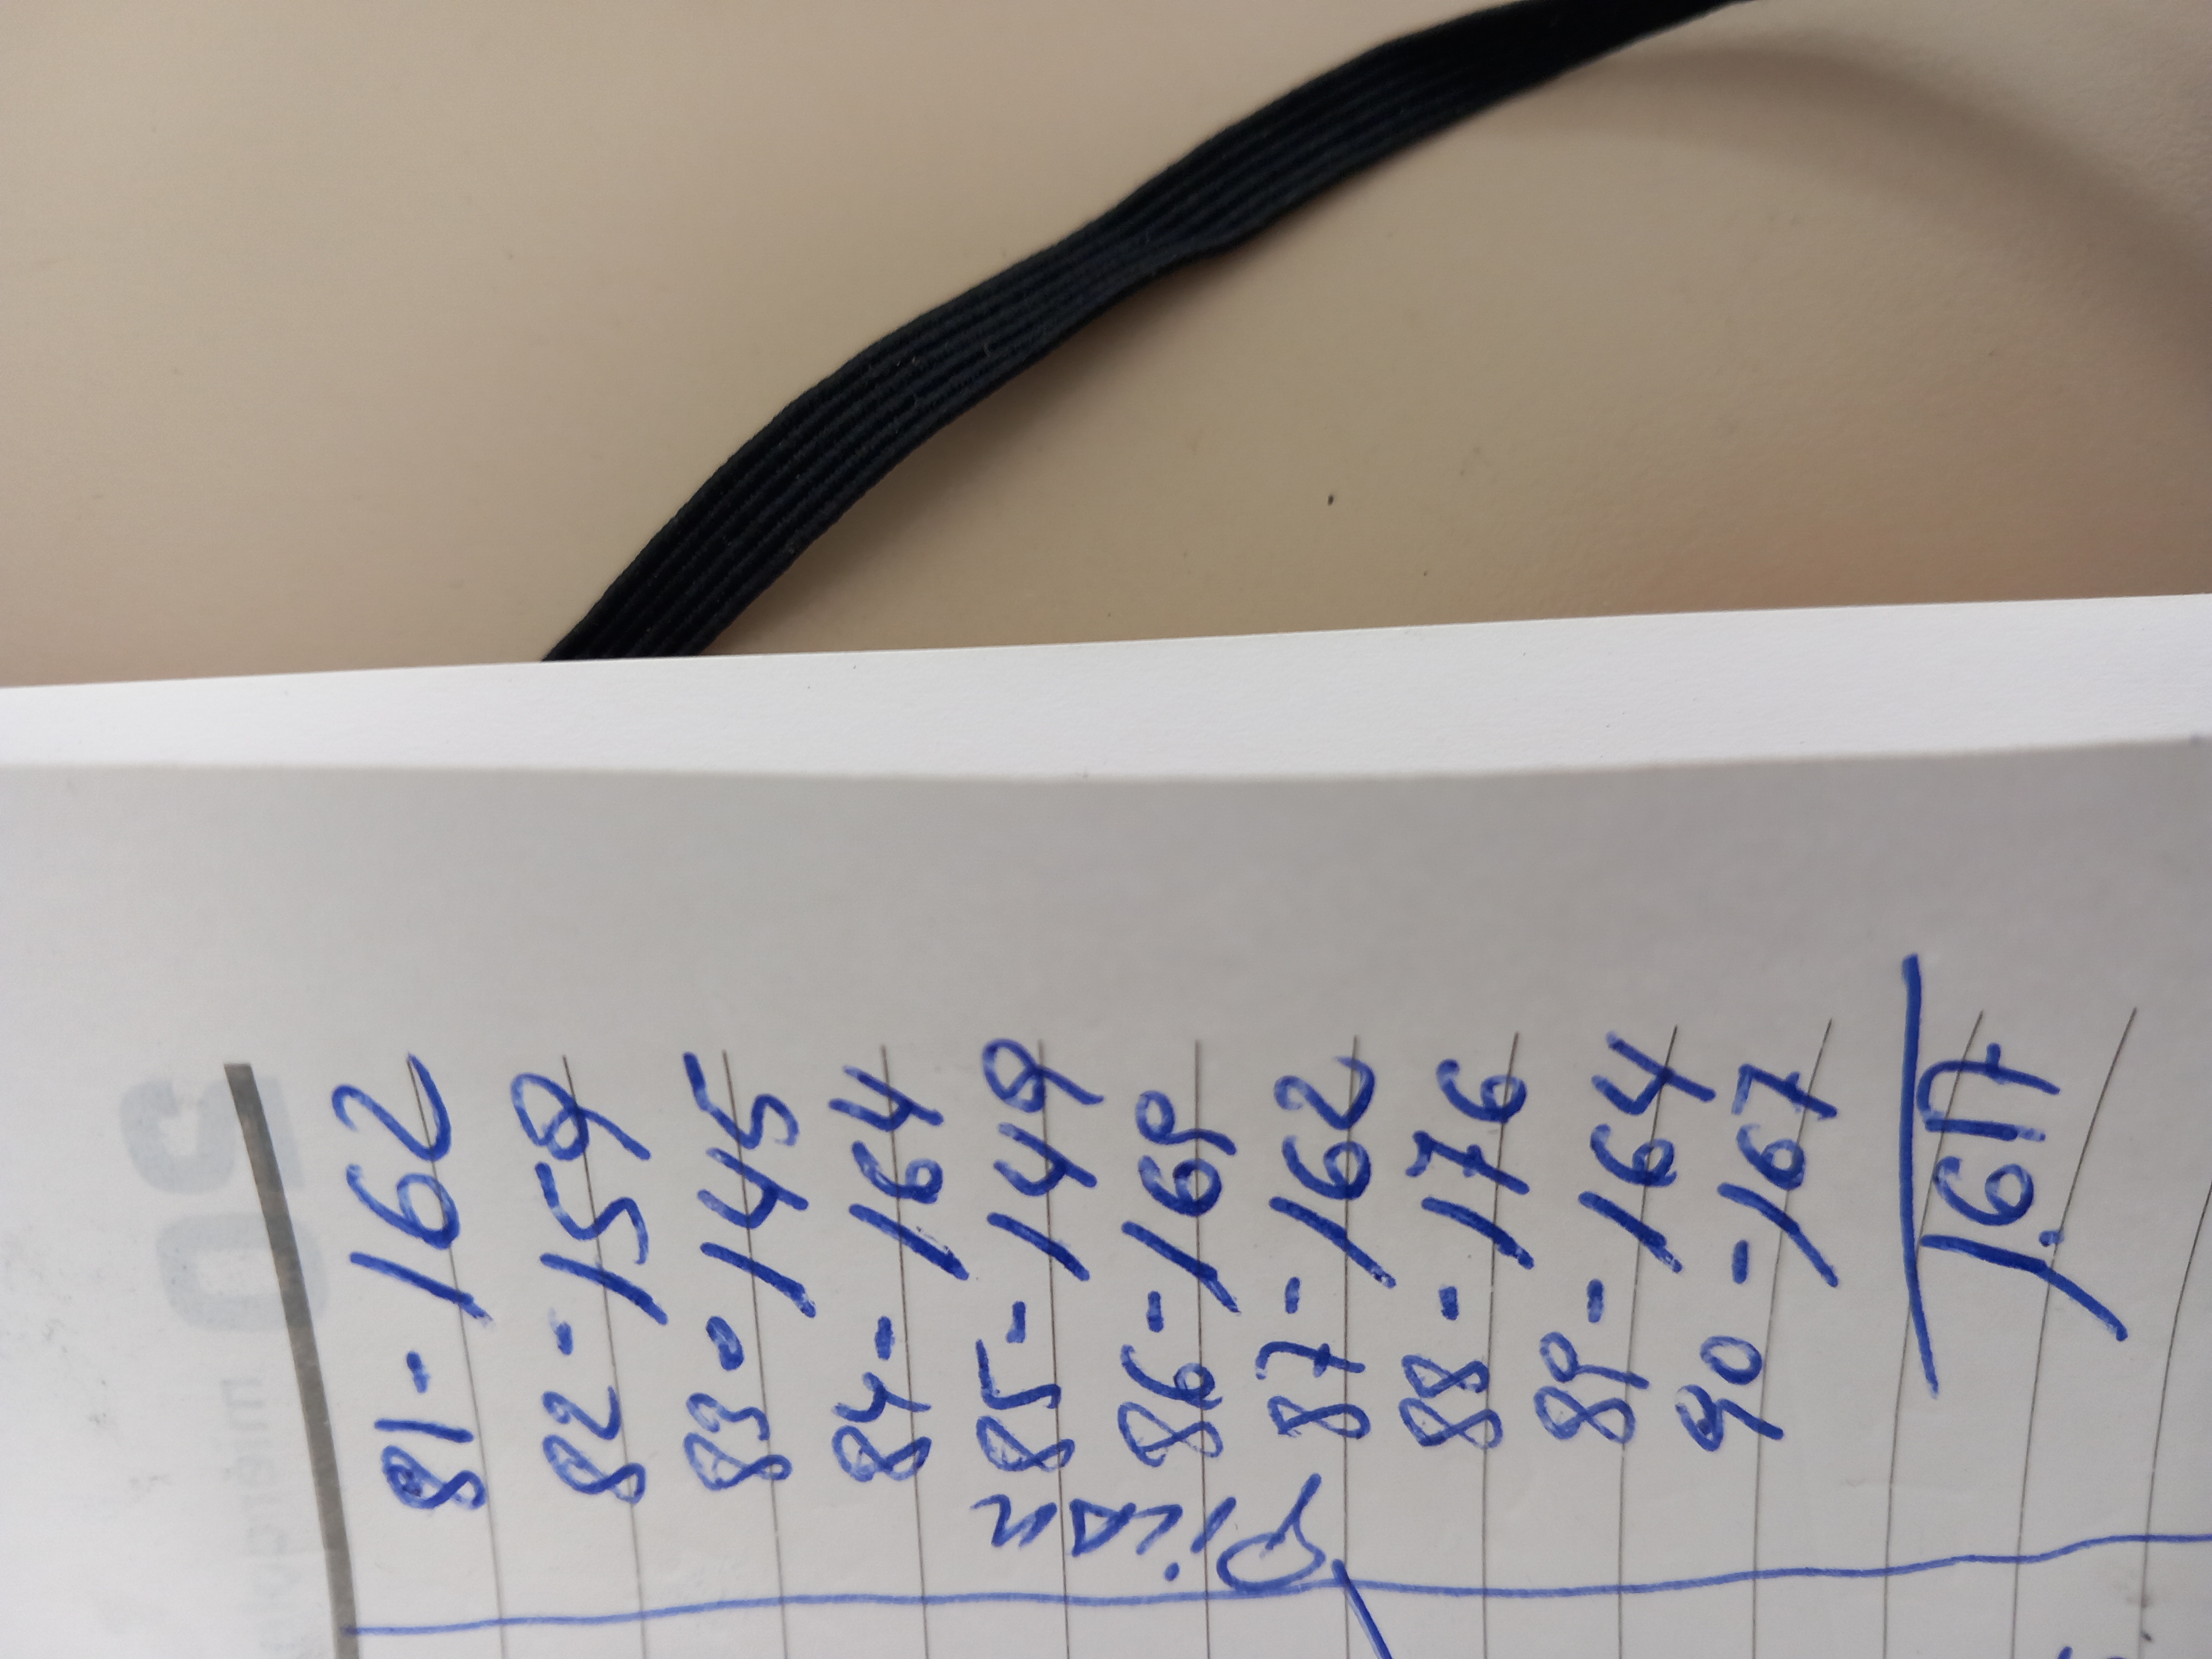 81 - 162
82 - 159
83 - 145
84 - 164
85 - 149
86 - 169
87 - 162
88 - 176
89 - 164
90 - 167
1.617